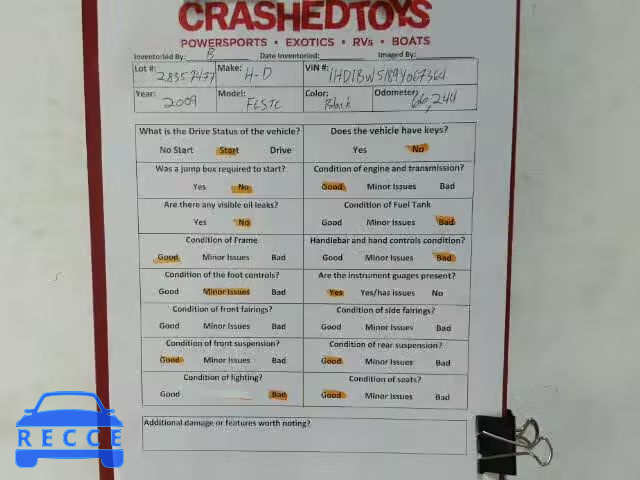 CRASHEDTOYS
POWERSPORTS • EXOTICS • RVs • BOATS
Inventoried By: B Date Inventoried: Imaged By:
Lot #: 28357477 Make: H-D VIN #: 1HD1BW5189Y067364
Year: 2009 Model: FLSTC Color: Black Odometer: 66,244
What is the Drive Status of the vehicle? Does the vehicle have keys?
No Start Start Drive Yes No
Was a jump box required to start? Condition of engine and transmission?
Yes No Good Minor Issues Bad
Are there any visible oil leaks? Condition of Fuel Tank
Yes No Good Minor Issues Bad
Condition of Frame Handlebar and hand controls condition?
Good Minor Issues Bad Good Minor Issues Bad
Condition of the foot controls? Are the instrument guages present?
Good Minor Issues Bad Yes Yes/has issues No
Condition of front fairings? Condition of side fairings?
Good Minor Issues Bad Good Minor Issues Bad
Condition of front suspension? Condition of rear suspension?
Good Minor Issues Bad Good Minor Issues Bad
Condition of lighting? Condition of seats?
Good Bad Good Minor Issues Bad
Additional damage or features worth noting?
RECCE